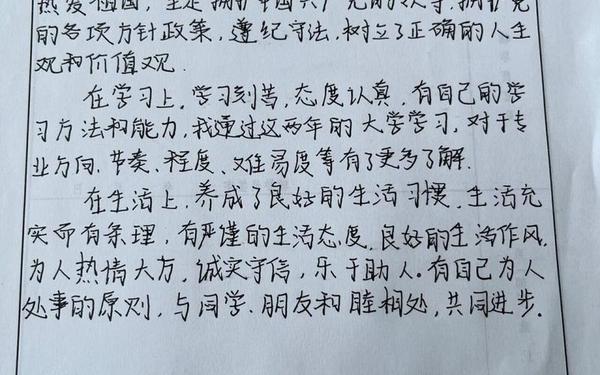 热爱祖国，坚定拥护中国共产党的领导，拥护党
的各项方针政策，遵纪守法，树立了正确的人生
观和价值观.
在学习上，学习刻苦，态度认真，有自己的学
习方法和能力，我通过这两年的大学学习，对于专
业方向、节奏、程度、难易度等有了更多了解.
在生活上，养成了良好的生活习惯，生活充
实而有条理，有严谨的生活态度，良好的生活作风，
为人热情大方，诚实守信，乐于助人，有自己为人
处事的原则，与同学、朋友和睦相处，共同进步.